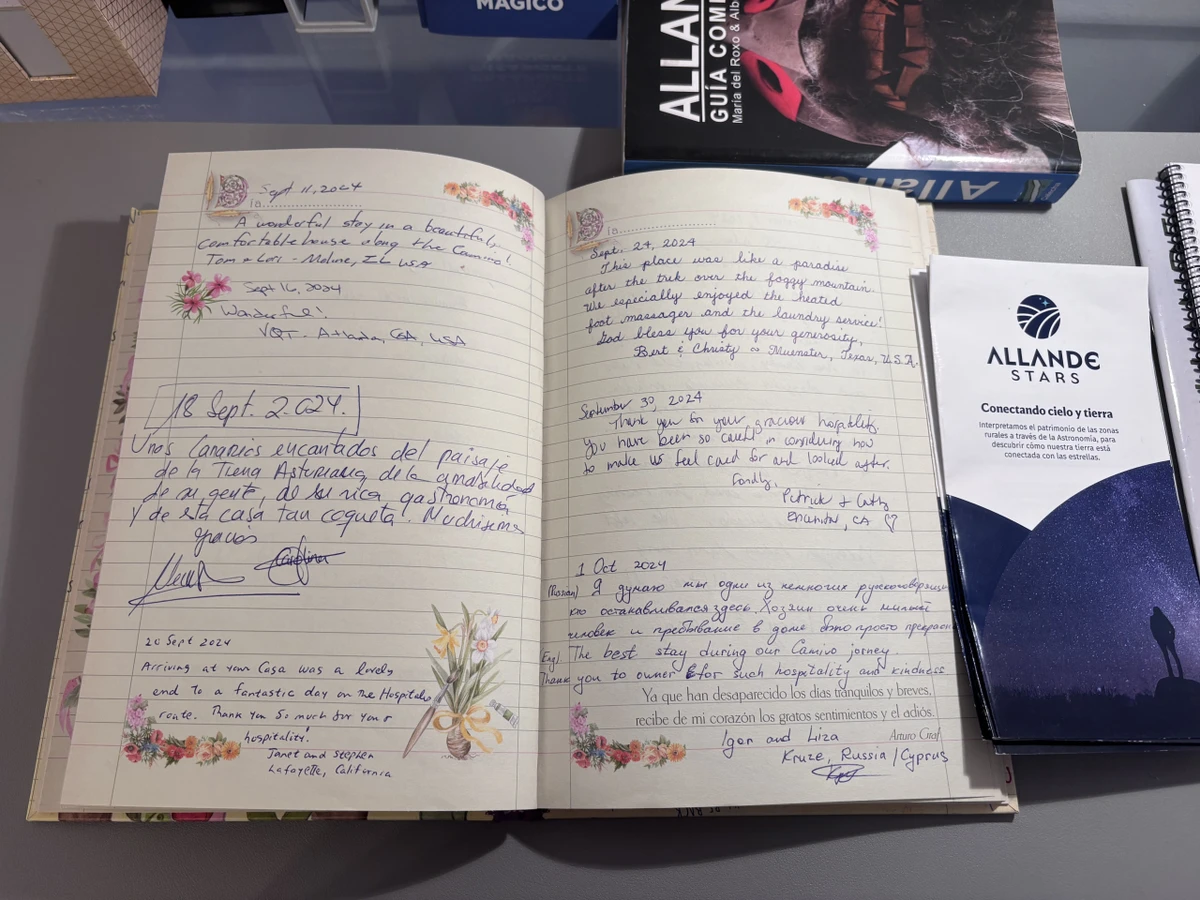 MÁGICO
ALLAN
GUÍA COM
María del Roxo & Alb
Allan
Sept 11, 2024
ía
A wonderful stay in a beautiful,
comfortable house along the Camino!
Tom & Lori - Moline, IL USA
Sept 16, 2024
Wonderful!
VQT - Atlanta, GA, USA
18 Sept. 2.024.
Unos Canarios encantados del paisaje
de la Tierra Asturiana, de la amabilidad
de su gente, de su rica gastronomía
y de esta casa tan coqueta! Muchísimas
gracias
Carolina
20 Sept 2024
Arriving at your Casa was a lovely
end to a fantastic day on the Hospitales
route. Thank you so much for your
hospitality!
Janet and Stephen
Lafayette, California
ía
Sept. 24, 2024
This place was like a paradise
after the trek over the foggy mountain.
We especially enjoyed the heated
foot massager and the laundry service!
God bless you for your generosity,
Bert & Christy ~ Muenster, Texas, U.S.A.
September 30, 2024
Thank you for your gracious hospitality.
You have been so careful in considering how
to make us feel cared for and looked after.
Fondly,
Patrick & Cathy
CA
1 Oct 2024
(Russian) Я думаю мы одни из немногих рускоговорящих
кто останавливался здесь. Хозяин очень милый
человек и пребывание в доме было просто прекрасн
(Eng) The best stay during our Camino jorney.
Thank you to owner for such hospitality and kindness
Ya que han desaparecido los días tranquilos y breves,
recibe de mi corazón los gratos sentimientos y el adiós.
Arturo Graf
Igor and Liza
Kruze, Russia/Cyprus
ALLANDE
STARS
Conectando cielo y tierra
Interpretamos el patrimonio de las zonas
rurales a través de la Astronomía, para
descubrir cómo nuestra tierra está
conectada con las estrellas.